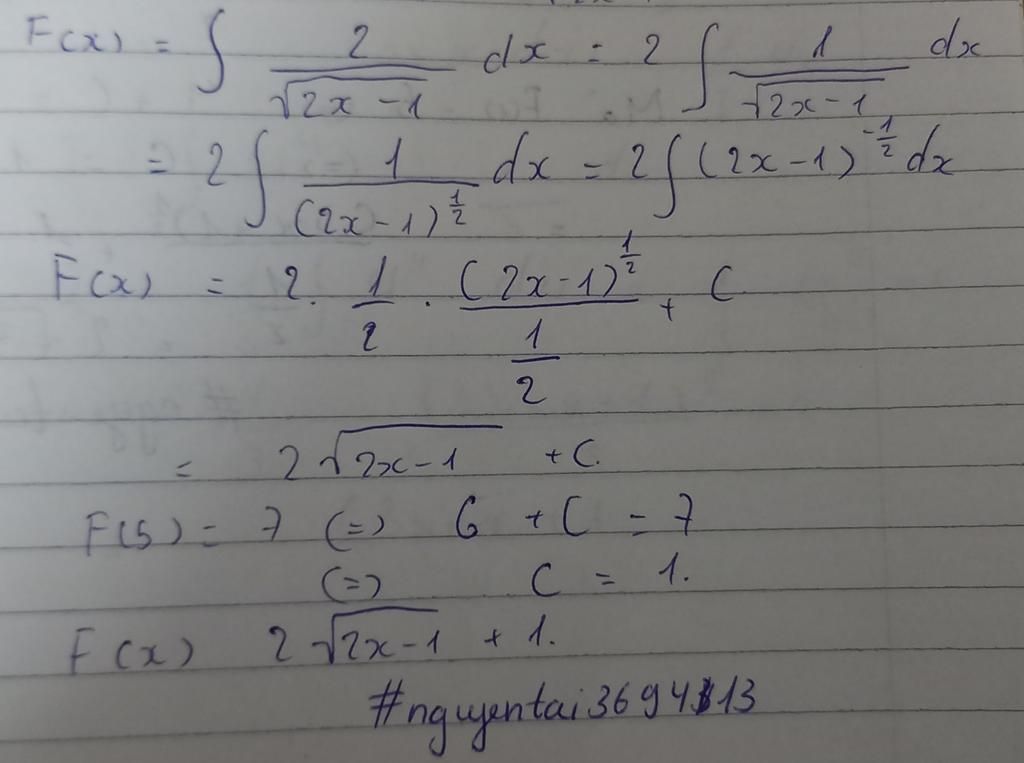 F(x) = ∫ 2/√(2x-1) dx = 2 ∫ 1/√(2x-1) dx
= 2 ∫ 1/(2x-1)^(1/2) dx = 2 ∫ (2x-1)^(-1/2) dx
F(x) = 2. 1/2 . (2x-1)^(1/2)/(1/2) + C
= 2 √(2x-1) + C.
F(5) = 7 (=) 6 + C = 7
(=) C = 1.
F(x) 2 √(2x-1) + 1.